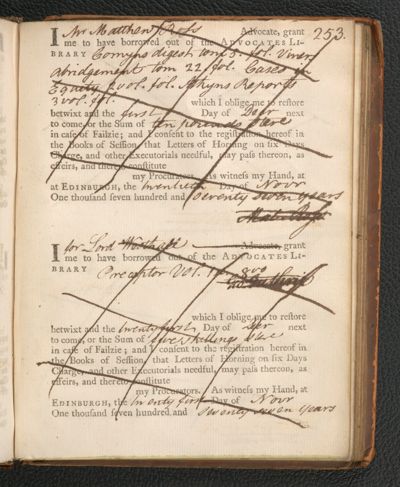 253.
I Mr Matthew Ross Advocate, grant
me to have borrowed out of the ADVOCATES LI-
BRARY Comyns digest tom 5. fol. Viner
Abridgement tom 22 fol. Cases in
Equity 2 vol. fol. Atkyns Reports
3 vol. fol. which I oblige me to reſtore
betwixt and the first Day of Decr next
to come, or the Sum of ten pounds Sterl
in caſe of Failzie; and I conſent to the regiſtration hereof in
the Books of Seſſion, that Letters of Horning on ſix Days
Charge, and other Executorials needful, may paſs thereon, as
effeirs, and thereto conſtitute
my Procurators. As witneſs my Hand, at
at EDINBURGH, the twentieth Day of Novr
One thouſand ſeven hundred and Seventy Seven years
Mat. Ross
I for Lord Advocate, grant
me to have borrowed out of the ADVOCATES LI-
BRARY Preceptor Vol. 1st 8vo
which I oblige me to reſtore
betwixt and the twenty first Day of Decr next
to come, or the Sum of five shillings Ster
in caſe of Failzie; and I conſent to the regiſtration hereof in
the Books of Seſſion, that Letters of Horning on ſix Days
Charge, and other Executorials needful, may paſs thereon, as
effeirs, and thereto conſtitute
my Procurators. As witneſs my Hand, at
EDINBURGH, the twenty first Day of Novr
One thouſand ſeven hundred and Seventy Seven years